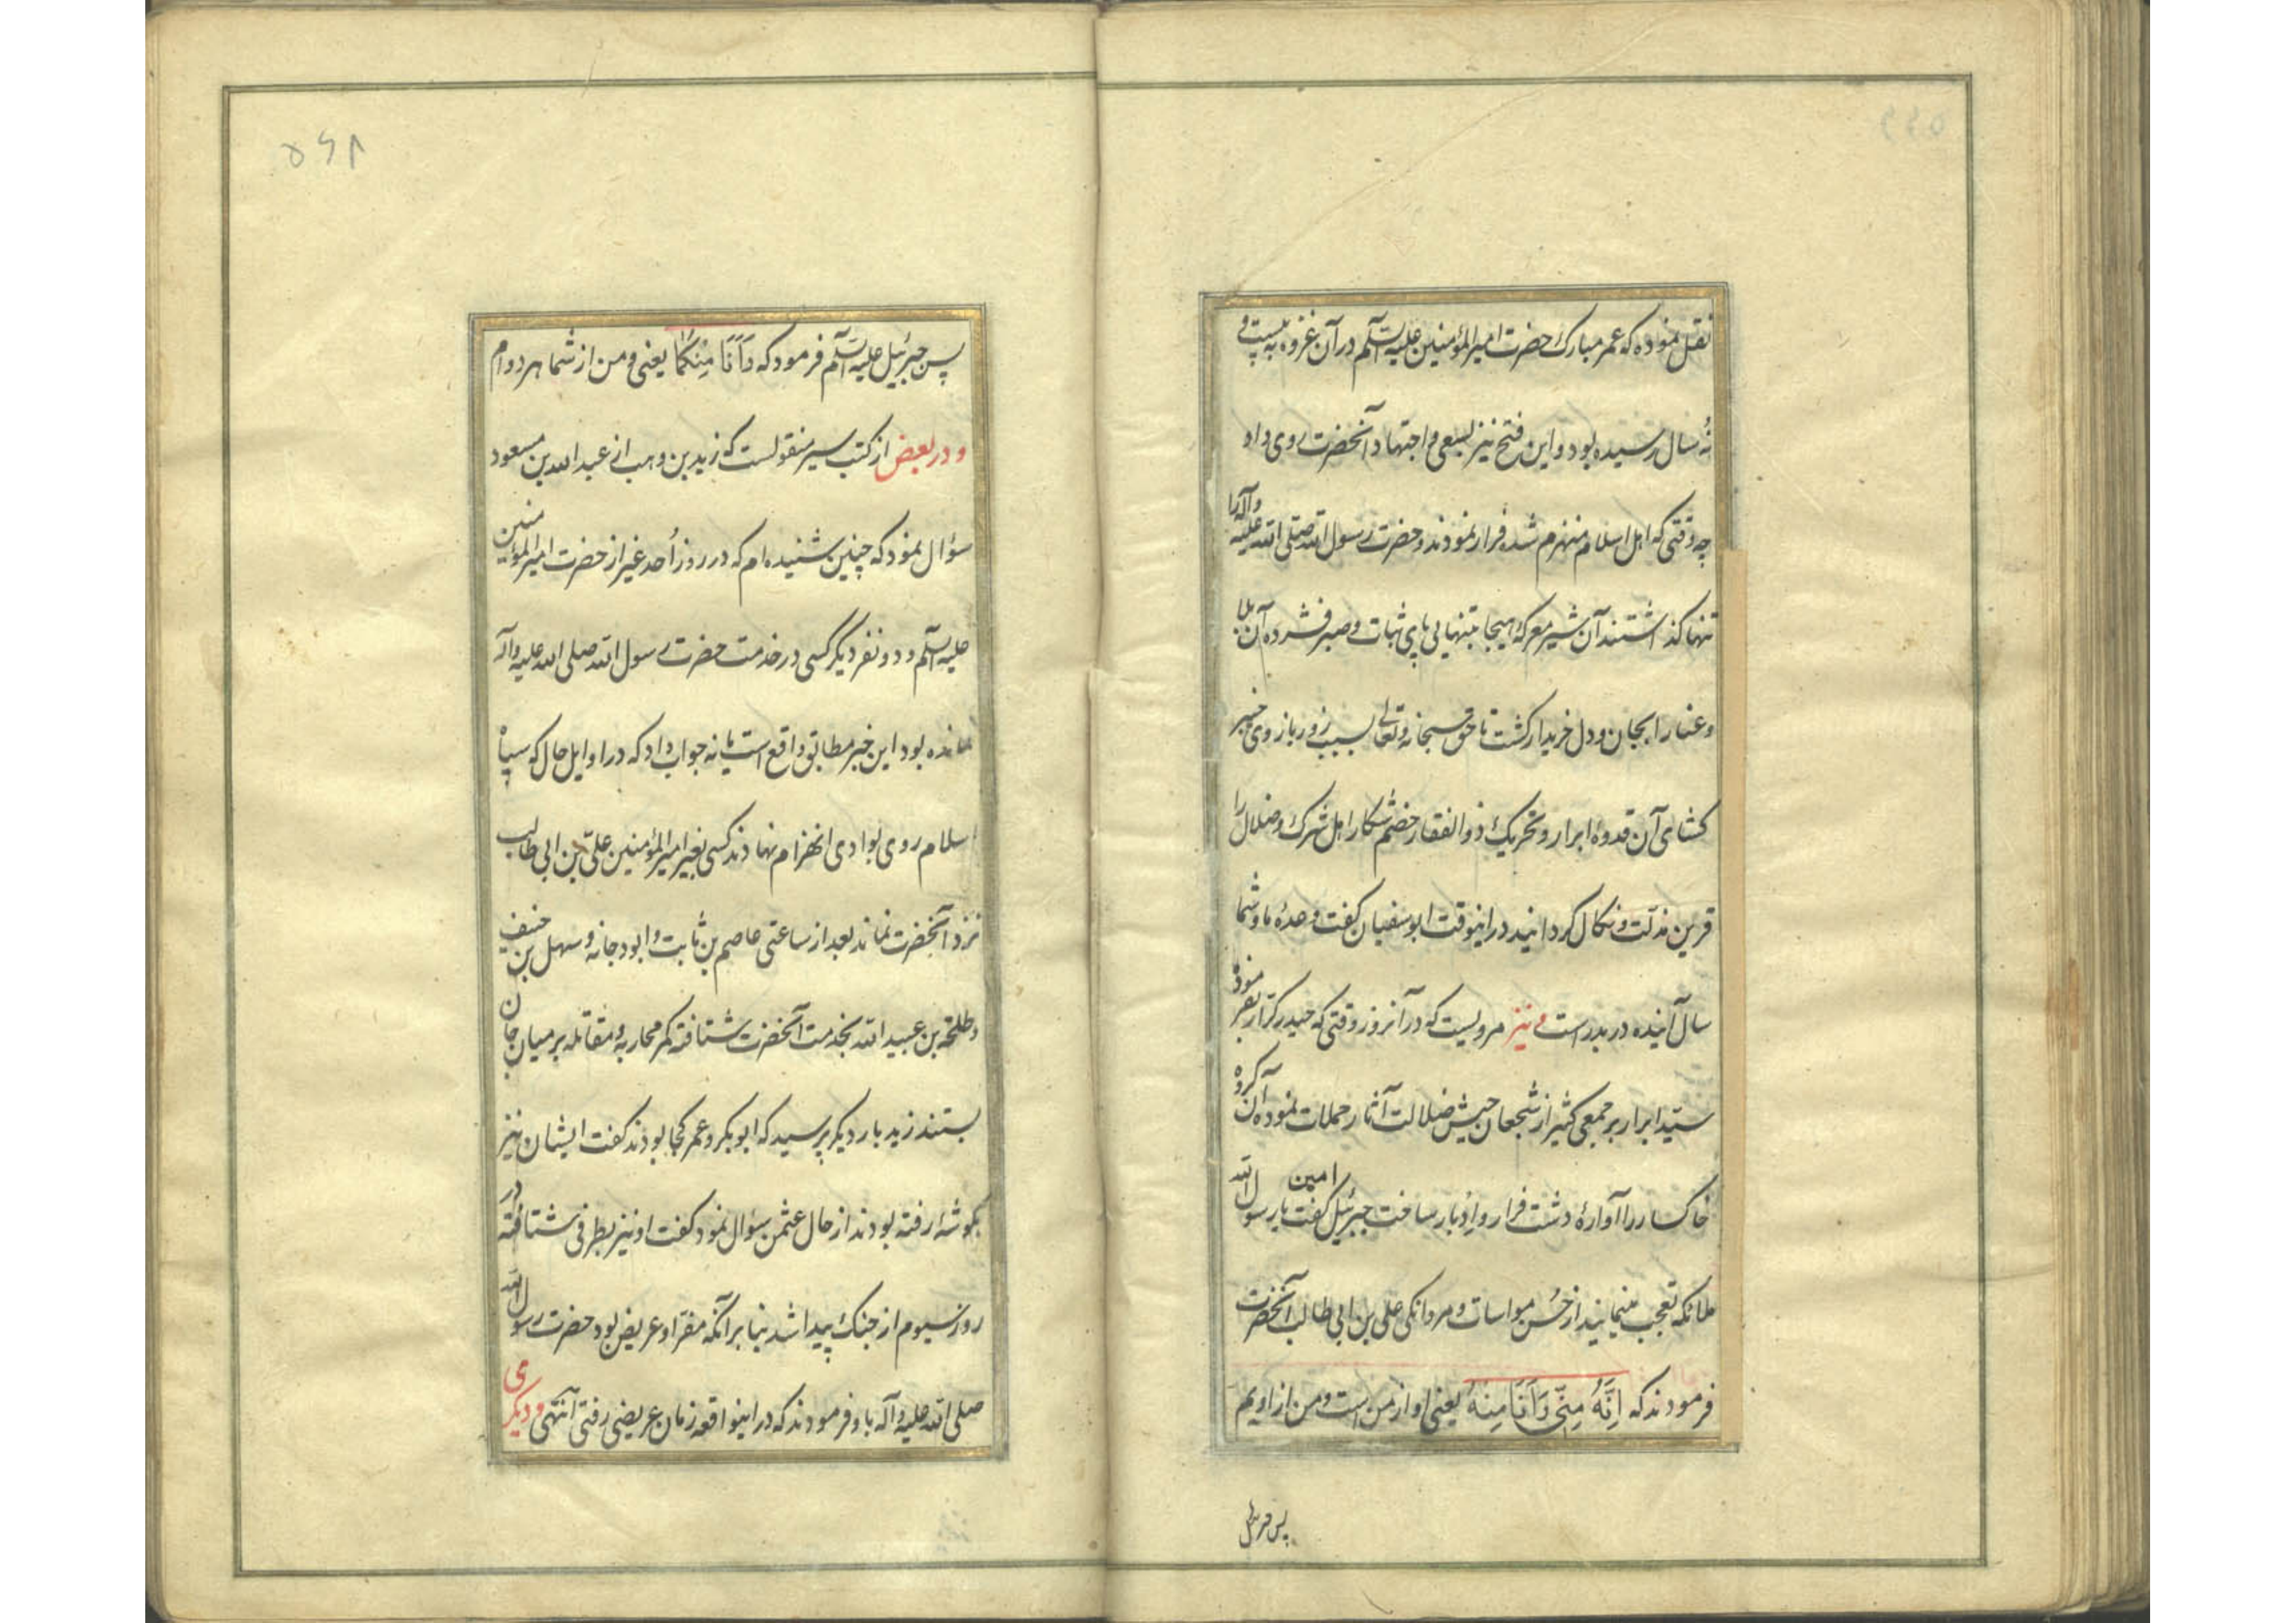 نقل نموده که عمر مبارک حضرت امیرالمؤمنین علیه السلم در آن غزوه به بیست و
نُه سال رسیده بود و این فتح نیز بسعی و اجتهاد آنحضرت روی داد
چه وقتی که اهل اسلام منهزم شده فرار نمودند و حضرت رسول الله صلی الله علیه وآله را
تنها کذاشتند آن شیر معرکهٔ هیجا بتنهایی پای ثبات و صبر فشرده آن بلا
وعنا را بجان و دل خریدار کشت تا حق سبحانه وتعالی بسبب زور بازوی خیبر
کشای آن قدوهٔ ابرار و تحریک ذوالفقار خصم شکار اهل شرک و ضلال را
قرین مذلّت و نکال کردانید در اینوقت ابوسفیان کفت وعدهٔ ما و شما
سال آینده در بدر است و نیز مرویست که در آنروز وقتی که حیدر کرّار بفرمودهٔ
سیّد ابرار بر جمعی کثیر از شجعان جیش ضلالت آثار حملات نموده آن کروه
خاکسار را آوارهٔ دشت فرار و اِدبار ساخت جبرئیل امین کفت یا رسول الله
ملائکه تعجب مینمایند از حُسن مواسات و مردانکی علی بن ابی طالب آنحضرت
فرمودند که اِنَّهُ مِنِّی وَاَنَا مِنهُ یعنی او از من است و من از اویم
۵۶۸
پس جبرئیل علیه السلم فرمود که وَاَنَا مِنکُما یعنی و من از شما هر دوام
و در بعض از کتب سیر منقولست که زید بن وهب از عبدالله بن مسعود
سؤال نمود که چنین شنیده ام که در روز اُحد غیر از حضرت امیرالمؤمنین
علیه السلم و دو نفر دیگر کسی در خدمت حضرت رسول الله صلی الله علیه وآله
نمانده بود این خبر مطابق واقع است یا نه جواب داد که در اوایل حال که سپاه
اسلام روی بوادی انهزام نهادند کسی بغیر امیرالمؤمنین علیّ بن ابی طالب
نزد آنحضرت نماند بعد از ساعتی عاصم بن ثابت و ابودجانه و سهل بن حنیف
و طلحة بن عبیدالله بخدمت آنحضرت شتافته کمر محاربه و مقاتله بر میان جان
بستند زید بار دیکر پرسید که ابوبکر و عمر کجا بودند کفت ایشان نیز
بکوشهٔ رفته بودند از حال عثمن سؤال نمود کفت او نیز بطرفی شتافته در
روز سیوم از جنک پیدا شد بنا بر آنکه مفرّ او عریض بود حضرت رسول الله
صلی الله علیه وآله باو فرمودند که در اینواقعه زمان عریضی رفتی انتهی و دیکری